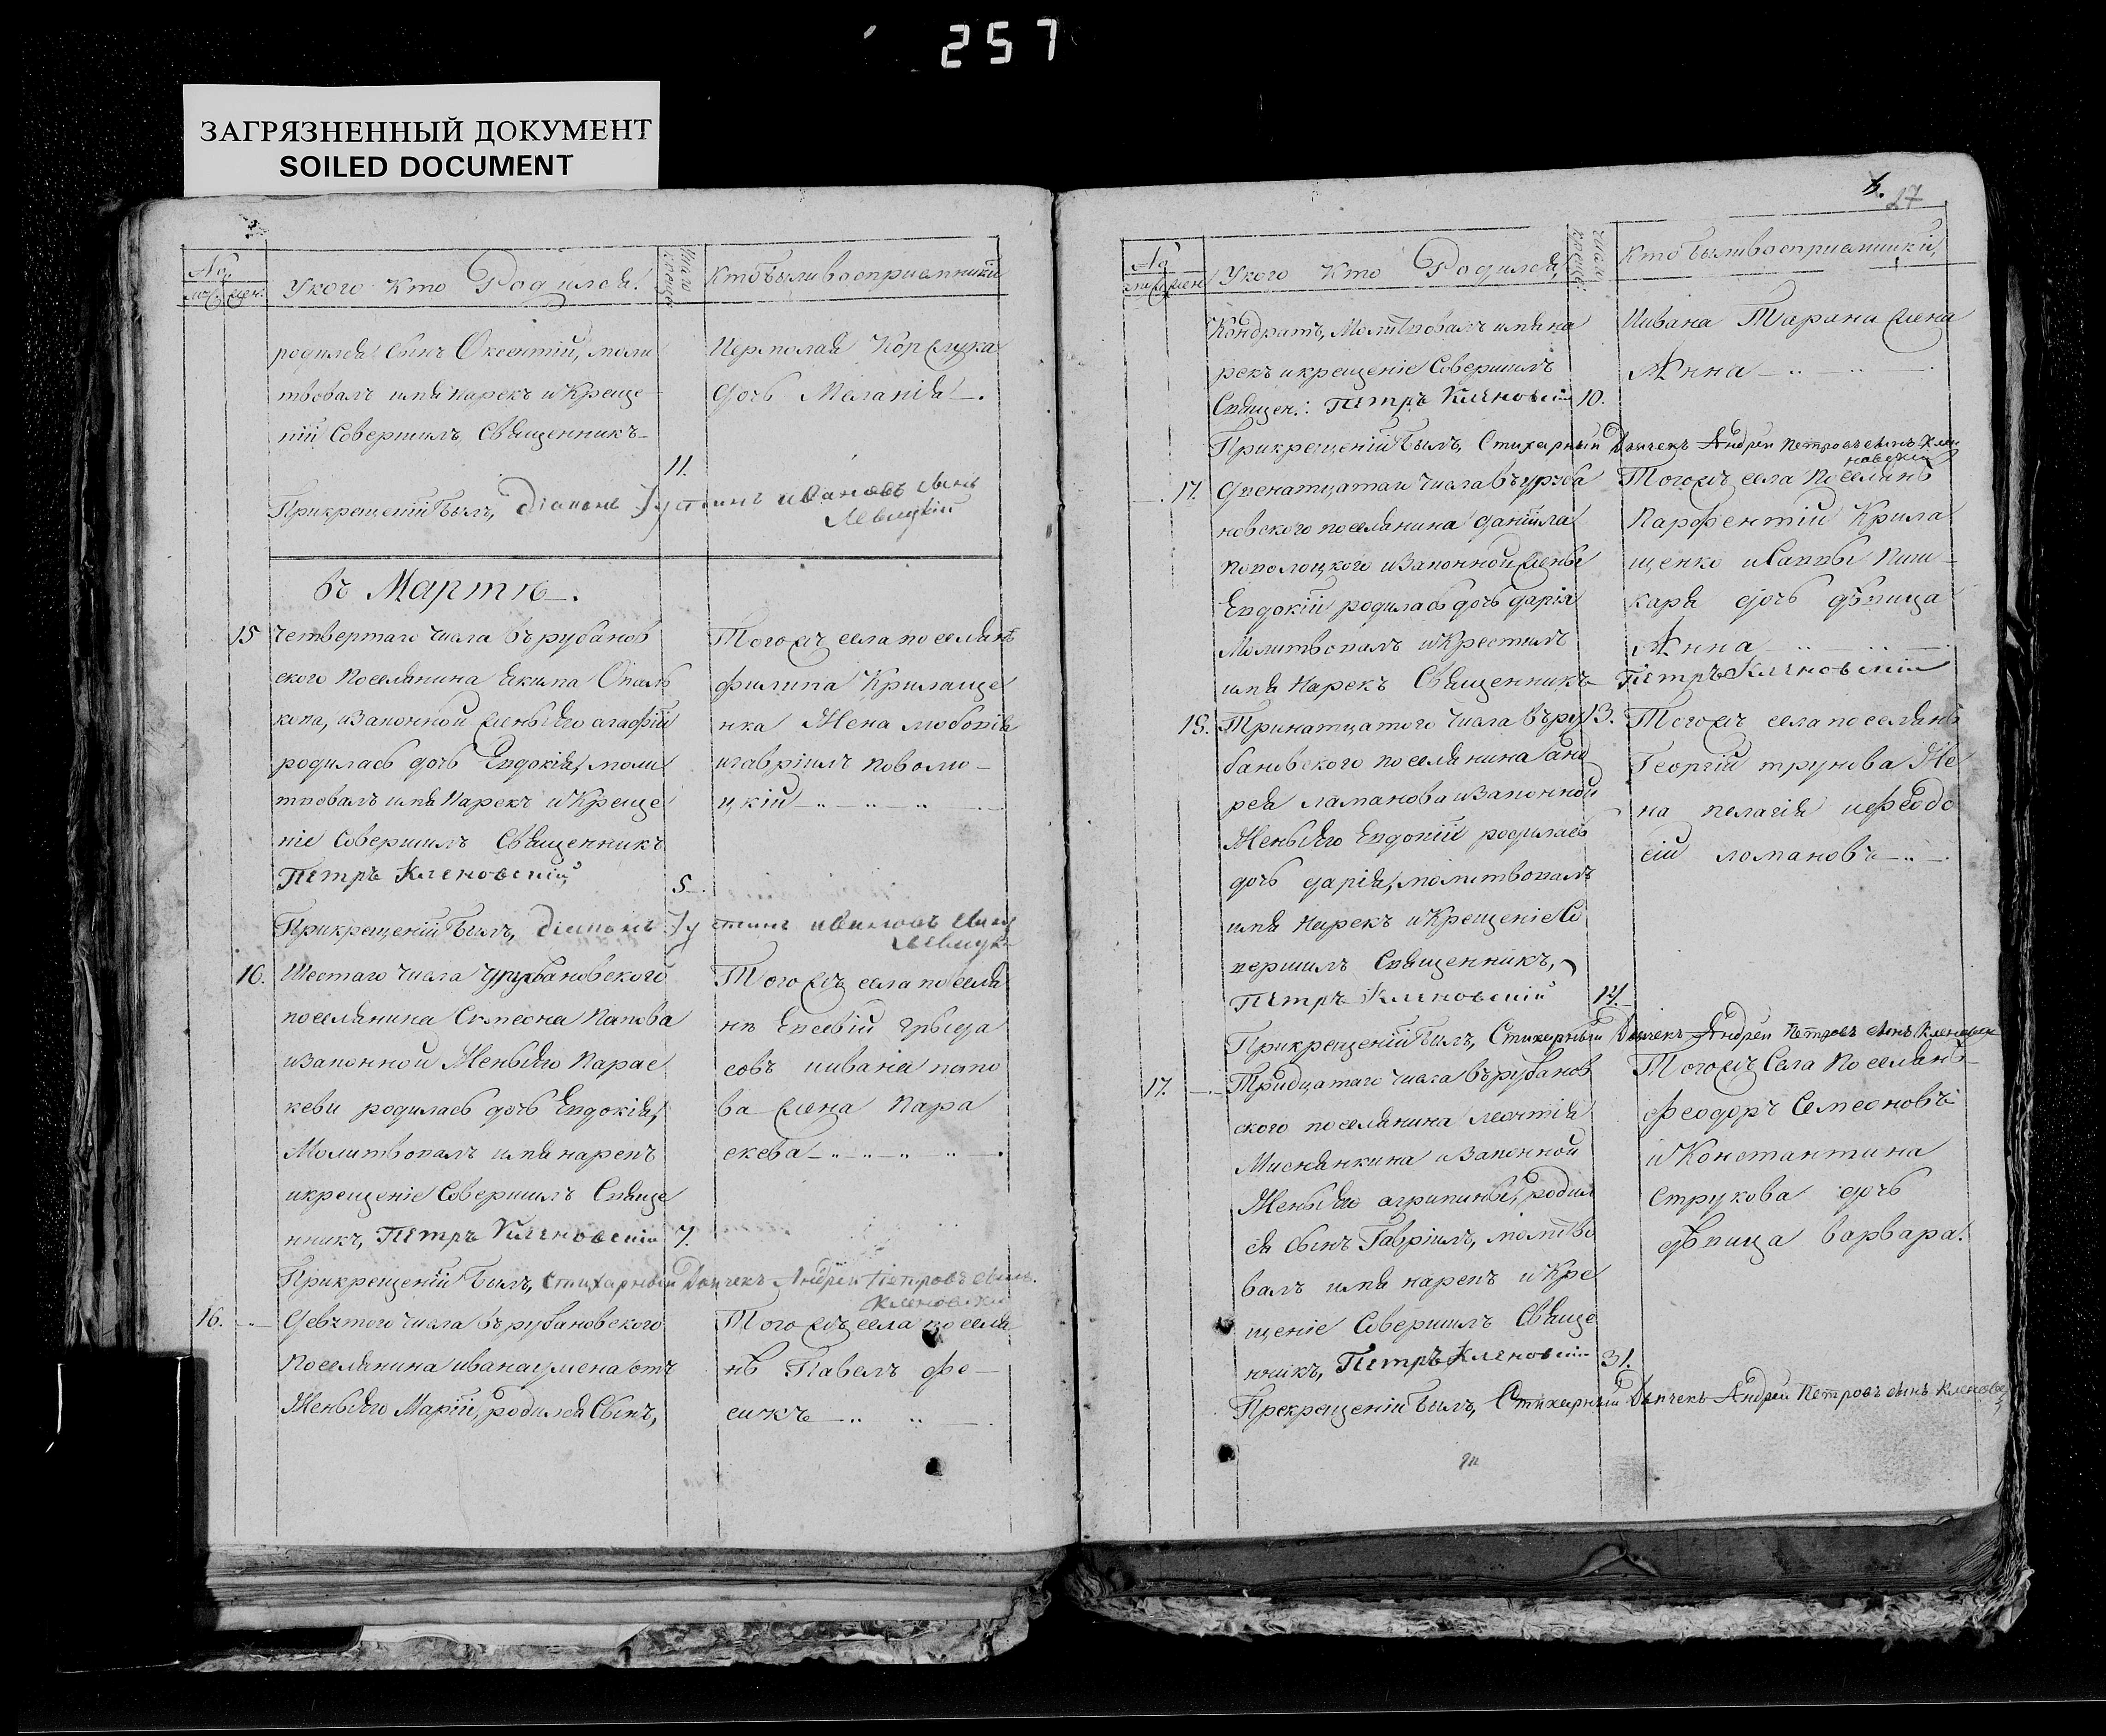 257
ЗАГРЯЗНЕННЫЙ ДОКУМЕНТ
SOILED DOCUMENT
№
муж. жен.
У кого кто Родился.
Число крещен.
Кто были восприемники
родился сынъ Оксентій, моли
твовалъ имя нарекъ и Креще
ніи Совершилъ Священникъ
11.
При крещеніи былъ, Діаконъ Іустинъ Ивановъ сынъ
Левицкій
Іермолая
дочь Меланія
въ Мартѣ.
15 Четвертаго числа въ рубанов
ского Поселянина Екима
кова, и Законной жены Его агафіи
родилась дочь Евдокія, моли
твовалъ имя Нарекъ и Креще
ніе Совершилъ Священникъ
Петръ Кленовскій
5
Того жъ села поселянѣ
филипа Крилаще
нка Жена
и гавріилъ поволо
цкій
При крещеніи былъ, Діаконъ Іустинъ Ивановъ сынъ
16. Шестаго числа у рубановского
поселянина Симеона Попова
и Законной Жены Его Парас
кеви родилась дочь Евдокія,
Молитвовалъ имя нарекъ
и крещеніе Совершилъ Свяще
нникъ, Петръ Кленовскій 7.
Того жъ села поселя
не Евсевій
совъ и ивана попо
ва жена Пара
скева
При крещеніи былъ, Стихарный Дьячекъ Андрей Петровъ сынъ
Кленовскій
16. Девятого числа въ рубановского
Поселянина ивана от
Жены Его Маріи, родился Сынъ,
Того жъ села поселя
нѣ Павелъ фе
17
№
муж. жен.
У кого кто Родился,
Число крещен.
Кто были восприемники,
Кондратъ, Молитвовалъ имя на
рекъ и крещеніе Совершилъ
Священ.: Петръ Кленовскій 10.
Ивана Тарана жена
Анна
При крещеніи былъ, Стихарный Дьячекъ Андрей Петровъ сынъ Кле
новский
17. Двенатцатаго числа въ руба
новского поселянина даніила
Поволоцкого и Законной жены
Евдокіи родилась дочь дарія
Молитвовалъ и Крестилъ
имя Нарекъ Священникъ Петръ Кленовскій
Того жъ села Поселянѣ
Парфентій Крила
щенко и Саввы Пиш
каря дочь дѣвица
Анна
18. Тринатцатого числа въ ру
бановского поселянина анд
рея ламанова и Законной
Жены Его Евдокіи родилась
дочь дарія, молитвовалъ
имя Нарекъ и Крещеніе Со
вершилъ Священникъ,
Петръ Кленовскій 14.
13. Того жъ села поселянѣ
Георгій трунова Же
на пелагія и Феодо
сій ломановъ
При крещеніи былъ, Стихарный Дьячекъ Андрей Петровъ сынъ Кленовск
17. Тридцатаго числа въ рубанов
ского поселянина леонтія
Миснянкина и Законной
Жены Его агрипины, родил
ся сынъ Гавріилъ, молитво
валъ имя нарекъ и Кре
щеніе Совершилъ Свяще
нникъ, Петръ Кленовскій 31.
Того жъ Села Поселянѣ
феодоръ Семеоновъ
и Константина
Струкова дочь
дѣвица варвара.
Прекрещеніи былъ, Стихарный Дьячекъ Андрей Петровъ сынъ Кленовск